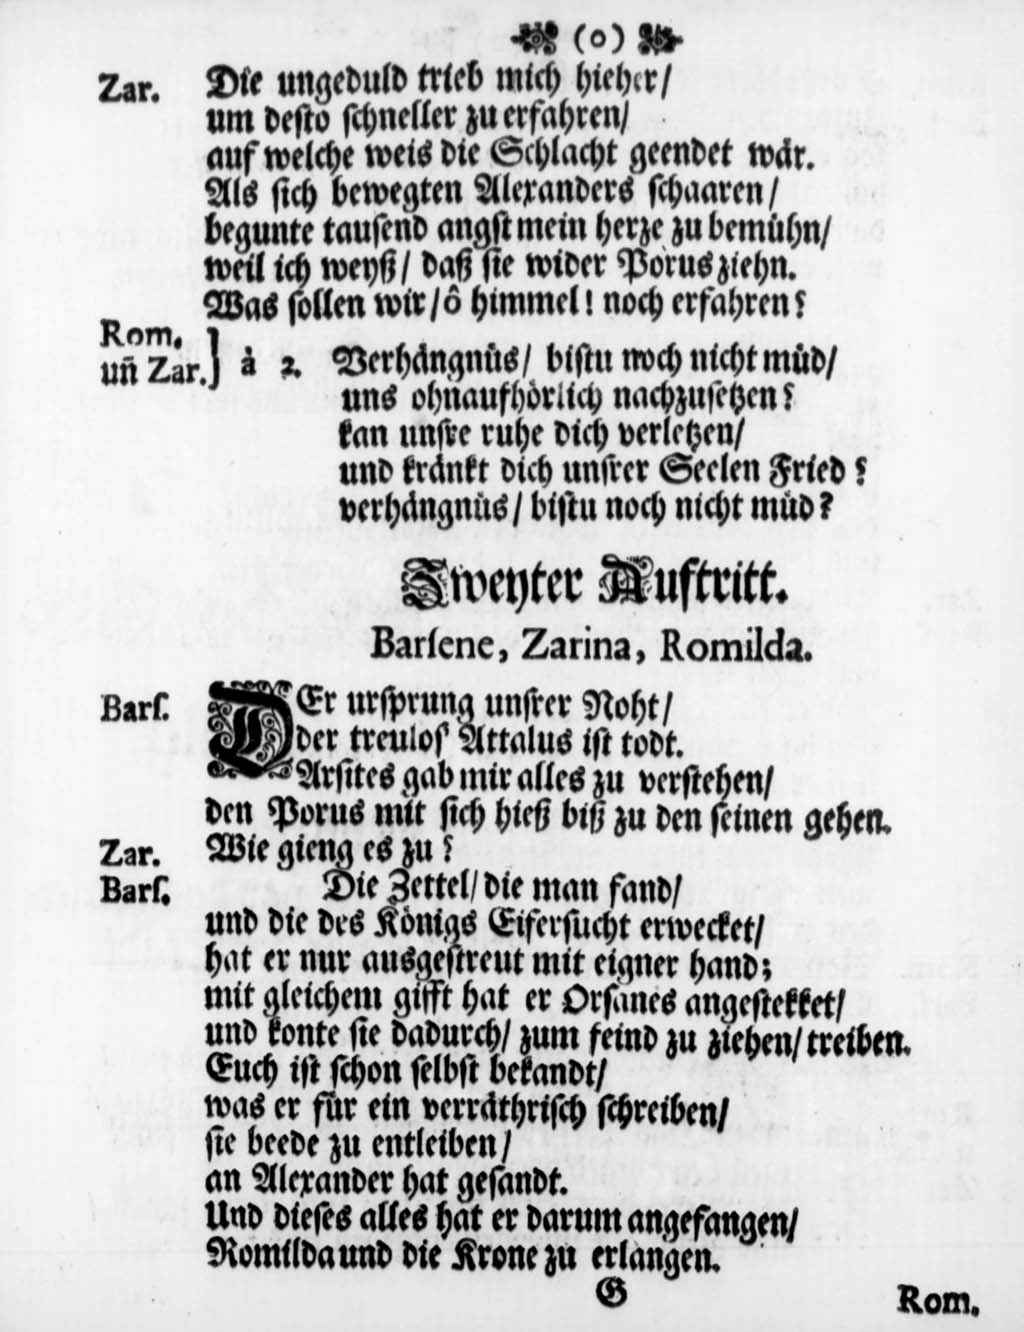 (o)
Zar. Die ungeduld trieb mich hieher/
um desto schneller zu erfahren/
auf welche weis die Schlacht geendet wär.
Als sich bewegten Alexanders schaaren/
begunte tausend angst mein herze zu bemühn/
weil ich weyß/ daß sie wider Porus ziehn.
Was sollen wir/ ô himmel! noch erfahren?
Rom.
uñ Zar.] à 2. Verhängnüs/ bistu noch nicht müd/
uns ohnaufhörlich nachzusetzen?
kan unsre ruhe dich verletzen/
und kränkt dich unsrer Seelen Fried?
verhängnüs/ bistu noch nicht müd?
Zweyter Auftritt.
Barsene, Zarina, Romilda.
Bars. DEr ursprung unsrer Noht/
der treulos' Attalus ist todt.
Arsites gab mir alles zu verstehen/
den Porus mit sich hieß biß zu den seinen gehen.
Zar. Wie gieng es zu?
Bars. Die Zettel/ die man fand/
und die des Königs Eifersucht erwecket/
hat er nur ausgestreut mit eigner hand;
mit gleichem gifft hat er Orsanes angestekket/
und konte sie dadurch/ zum feind zu ziehen/ treiben.
Euch ist schon selbst bekandt/
was er für ein verräthrisch schreiben/
sie beede zu entleiben/
an Alexander hat gesandt.
Und dieses alles hat er darum angefangen/
Romilda und die Krone zu erlangen.
G
Rom.